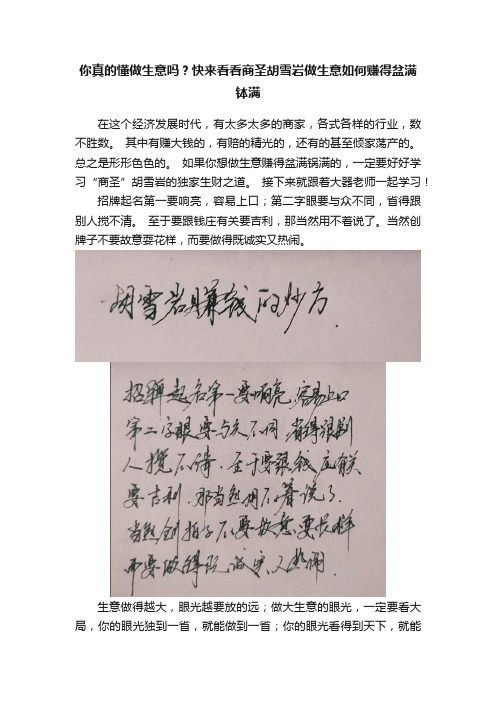 你真的懂做生意吗？快来看看商圣胡雪岩做生意如何赚得盆满
钵满
在这个经济发展时代，有太多太多的商家，各式各样的行业，数
不胜数。 其中有赚大钱的，有赔的精光的，还有的甚至倾家荡产的。
总之是形形色色的。 如果你想做生意赚得盆满锅满的，一定要好好学
习“商圣”胡雪岩的独家生财之道。 接下来就跟着大器老师一起学习！
招牌起名第一要响亮，容易上口；第二字眼要与众不同，省得跟
别人搅不清。 至于要跟钱庄有关要吉利，那当然用不着说了。当然创
牌子不要故意耍花样，而要做得既诚实又热闹。
胡雪岩赚钱的妙方.
招牌起名第一要响亮,容易上口
第二字眼要与众不同,省得跟别
人搅不清.至于要跟钱庄有关
要吉利.那当然用不着说了.
当然创牌子不要故意耍花样
而要做得既诚实又热闹.
生意做得越大，眼光越要放的远；做大生意的眼光，一定要看大
局，你的眼光独到一省，就能做到一省；你的眼光看得到天下，就能